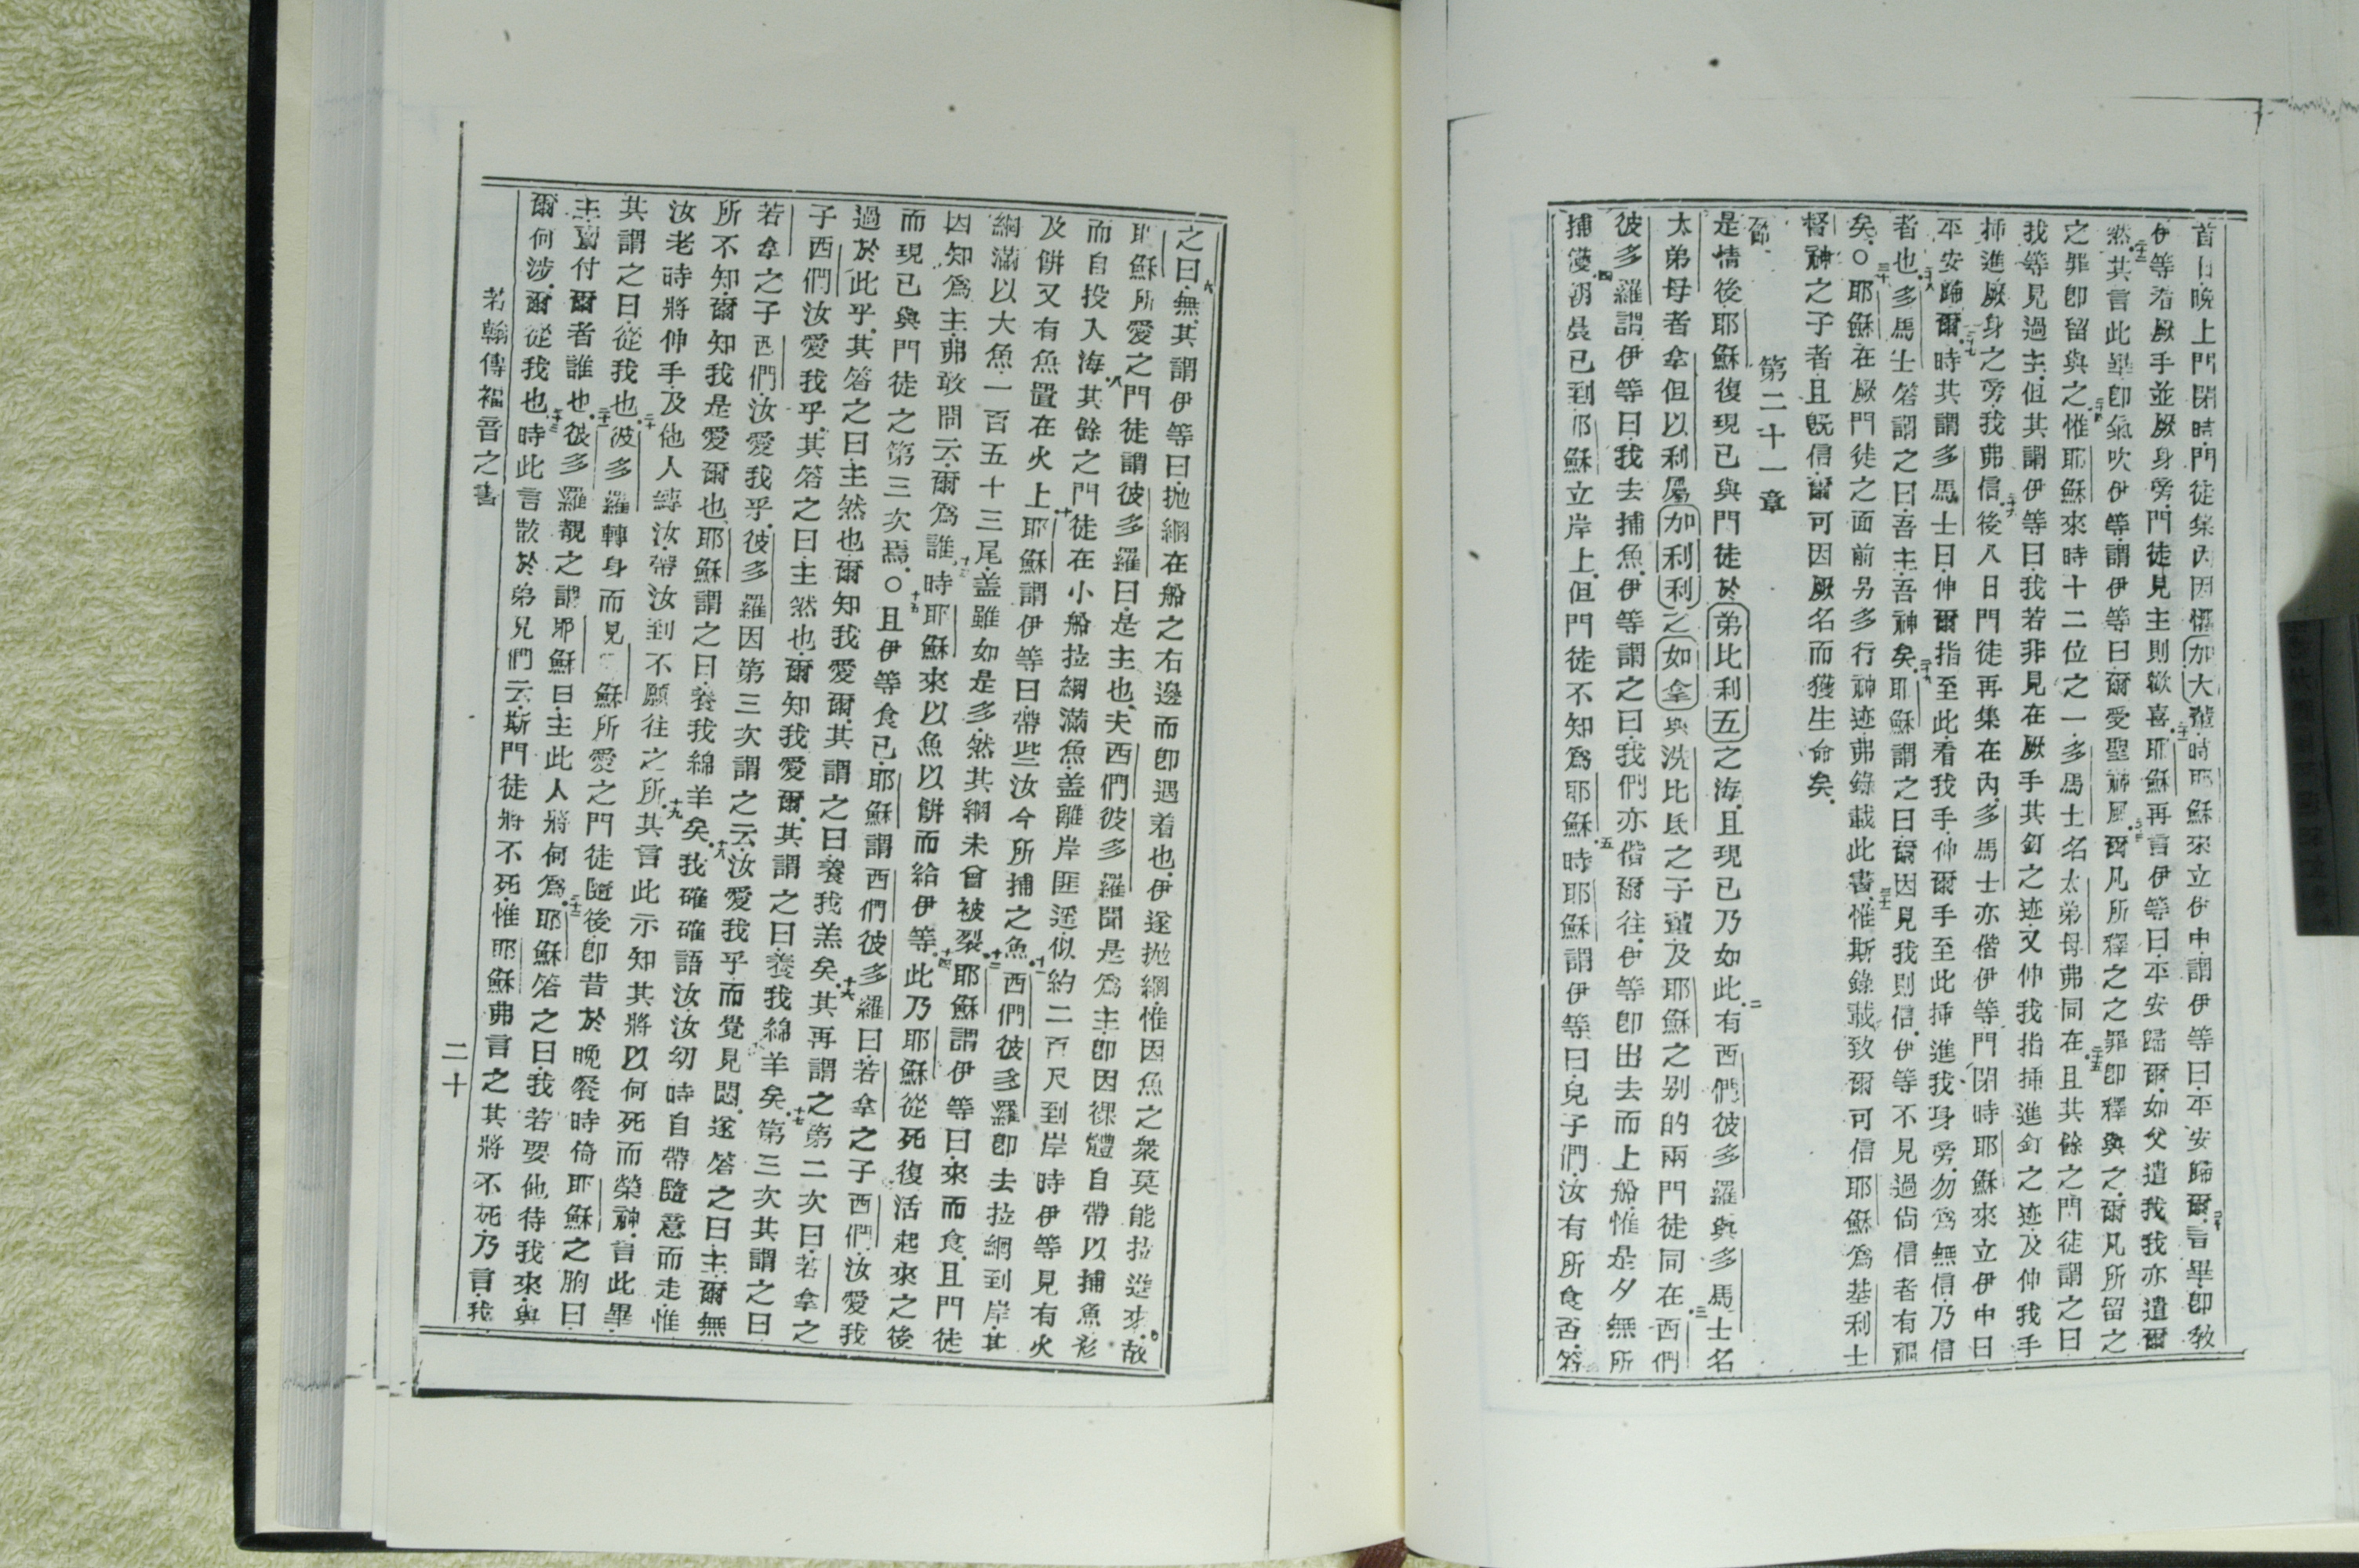 首日晚上門閉時門徒集內因懼加大輩時耶穌來立伊中謂伊等曰平安歸爾二十言畢卽教
伊等看厥手並厥身旁門徒見主則歡喜二十一耶穌再言伊等曰平安歸爾如父遣我我亦遣爾
二十二然其言此畢卽氣吹伊等謂伊等曰爾受聖神風二十三爾凡所釋之之罪卽釋與之爾凡所留之
之罪卽留與之二十四惟耶穌來時十二位之一多馬士名太弟母弗同在二十五且其餘之門徒謂之曰
我等見過主但其謂伊等曰我若非見在厥手其釘之迹又伸我指揷進釘之迹及伸我手
揷進厥身之旁我弗信二十六後八日門徒再集在內多馬士亦偕伊等門閉時耶穌來立伊中曰
平安歸爾二十七時其謂多馬士曰伸爾指至此看我手伸爾手至此揷進我身旁勿爲無信乃信
者也二十八多馬士答謂之曰吾主吾神矣二十九耶穌謂之曰爾因見我則信伊等不見過尙信者有福
矣○三十耶穌在厥門徒之面前另多行神迹弗錄載此書三十一惟斯錄載致爾可信耶穌爲基利士
督神之子者且旣信爾可因厥名而獲生命矣
第二十一章
節
是情後耶穌復現已與門徒於弟比利五之海且現已乃如此二有西們彼多羅與多馬士名
太弟母者拿但以利屬加利利之加拿與洗比氐之子輩及耶穌之别的兩門徒同在三西們
彼多羅謂伊等曰我去捕魚伊等謂之曰我們亦偕爾往伊等卽出去而上船惟是夕無所
捕獲四朝晨已到耶穌立岸上但門徒不知爲耶穌五時耶穌謂伊等曰兒子們汝有所食否答
之曰無六其謂伊等曰抛網在船之右邊而卽遇着也伊遂抛網惟因魚之衆莫能拉進來七故
耶穌所愛之門徒謂彼多羅曰是主也夫西們彼多羅聞是爲主卽因裸體自帶以捕魚衫
而自投入海八其餘之門徒在小船拉網滿魚盖離岸匪遥似約二百尺九到岸時伊等見有火
及餅又有魚置在火上十耶穌謂伊等曰帶些汝今所捕之魚十一西們彼多羅卽去拉網到岸其
網滿以大魚一百五十三尾盖雖如是多然其網未曾被裂十二耶穌謂伊等曰來而食且門徒
因知爲主弗敢問云爾爲誰十三時耶穌來以魚以餅而給伊等十四此乃耶穌從死復活起來之後
而現已與門徒之第三次焉○十五且伊等食已耶穌謂西們彼多羅曰若拿之子西們汝愛我
過於此乎其答之曰主然也爾知我愛爾其謂之曰養我羔矣十六其再謂之第二次曰若拿之
子西們汝愛我乎其答之曰主然也爾知我愛爾其謂之曰養我綿羊矣十七第三次其謂之曰
若拿之子西們汝愛我乎彼多羅因第三次謂之云汝愛我乎而覺見悶遂答之曰主爾無
所不知爾知我是愛爾也耶穌謂之曰養我綿羊矣十八我確確語汝汝幼時自帶隨意而走惟
汝老時將伸手及他人縛汝帶汝到不願往之所十九其言此示知其將以何死而榮神言此畢
其謂之曰從我也二十彼多羅轉身而見耶穌所愛之門徒隨後卽昔於晚餐時倚耶穌之胸曰
主賣付爾者誰也二十一彼多羅覩之謂耶穌曰主此人將何爲二十二耶穌答之曰我若要他待我來與
爾何涉爾從我也二十三時此言散於弟兄們云斯門徒將不死惟耶穌弗言之其將不死乃言我
若翰傳福音之書
二十